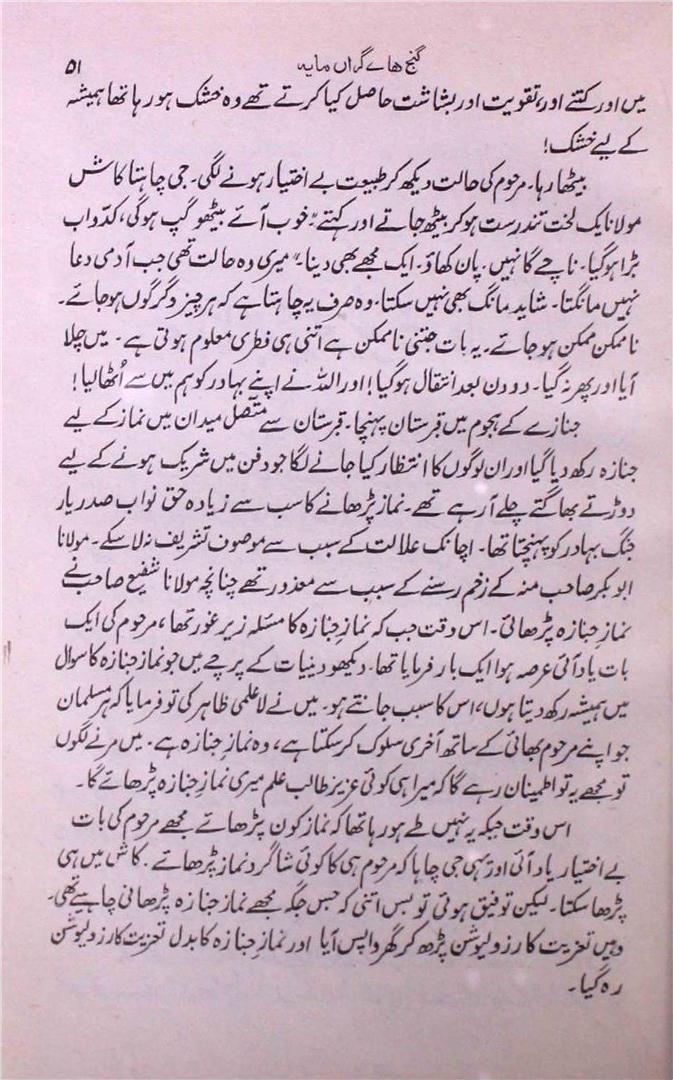 گنج ھاے گراں مایہ ۵۱
میں اور کتنے اور، تقویت اور بشاشت حاصل کیا کرتے تھے وہ خشک ہو رہا تھا ہمیشہ
کے لیے خشک!
بیٹھا رہا۔ مرحوم کی حالت دیکھ کر طبیعت بے اختیار ہونے لگی۔ جی چاہتا کاش
مولانا یک لخت تندرست ہو کر بیٹھ جاتے اور کہتے "خوب آئے بیٹھو گپ ہوگی، کدّو اب
بڑا ہوگیا۔ ناچے گا نہیں۔ پان کھاؤ۔ ایک مجھے بھی دینا۔" میری وہ حالت تھی جب آدمی دعا
نہیں مانگتا۔ شاید مانگ بھی نہیں سکتا۔ وہ صرف یہ چاہتا ہے کہ ہر چیز دگرگوں ہوجائے۔
ناممکن ممکن ہو جائے۔ یہ بات جتنی ناممکن ہے اتنی ہی فطری معلوم ہوتی ہے۔ میں چلا
آیا اور پھر نہ گیا۔ دو دن بعد انتقال ہوگیا! اور اللہ نے اپنے بہادر کو ہم میں سے اُٹھا لیا!
جنازے کے ہجوم میں قبرستان پہنچا۔ قبرستان سے متّصل میدان میں نماز کے لیے
جنازہ رکھ دیا گیا اور ان لوگوں کا انتظار کیا جانے لگا جو دفن میں شریک ہونے کے لیے
دوڑتے بھاگتے چلے آرہے تھے۔ نماز پڑھانے کا سب سے زیادہ حق نواب صدر یار
جنگ بہادر کو پہنچتا تھا۔ اچانک علالت کے سبب سے موصوف تشریف نہ لا سکے۔ مولانا
ابو بکر صاحب منہ کے زخم رسنے کے سبب سے معذور تھے چنانچہ مولانا شفیع صاحب نے
نماز جنازہ پڑھائی۔ اس وقت جب کہ نماز جنازہ کا مسئلہ زیر غور تھا، مرحوم کی ایک
بات یاد آئی عرصہ ہوا ایک بار فرمایا تھا۔ دیکھو دینیات کے پرچے میں جو نماز جنازہ کا سوال
میں ہمیشہ رکھ دیتا ہوں، اس کا سبب جانتے ہو۔ میں نے لاعلمی ظاہر کی تو فرمایا کہ ہر مسلمان
جو اپنے مرحوم بھائی کے ساتھ آخری سلوک کرسکتا ہے، وہ نماز جنازہ ہے۔ میں مرنے لگوں
تو مجھے یہ تو اطمینان رہے گا کہ میرا ہی کوئی عزیز طالب علم میری نماز جنازہ پڑھائے گا۔
اس وقت جبکہ یہ نہیں طے ہو رہا تھا کہ نماز کون پڑھائے مجھے مرحوم کی بات
بے اختیار یاد آئی اور یہی جی چاہا کہ مرحوم ہی کا کوئی شاگرد نماز پڑھائے۔ کاش میں ہی
پڑھا سکتا۔ لیکن توفیق ہوئی تو بس اتنی کہ جس جگہ مجھے نماز جنازہ پڑھانی چاہیے تھی۔
وہیں تعزیت کا رزولیوشن پڑھ کر گھر واپس آیا اور نماز جنازہ کا بدل تعزیت کا رزولیوشن
رہ گیا۔